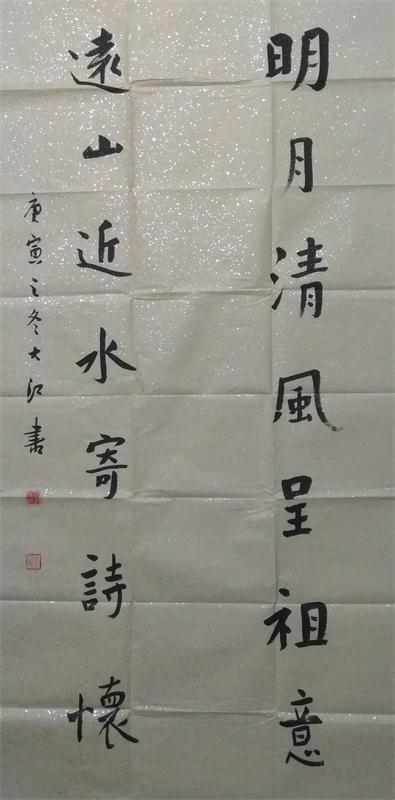 明月清風呈祖意
遠山近水寄詩懷
庚寅之冬大江書